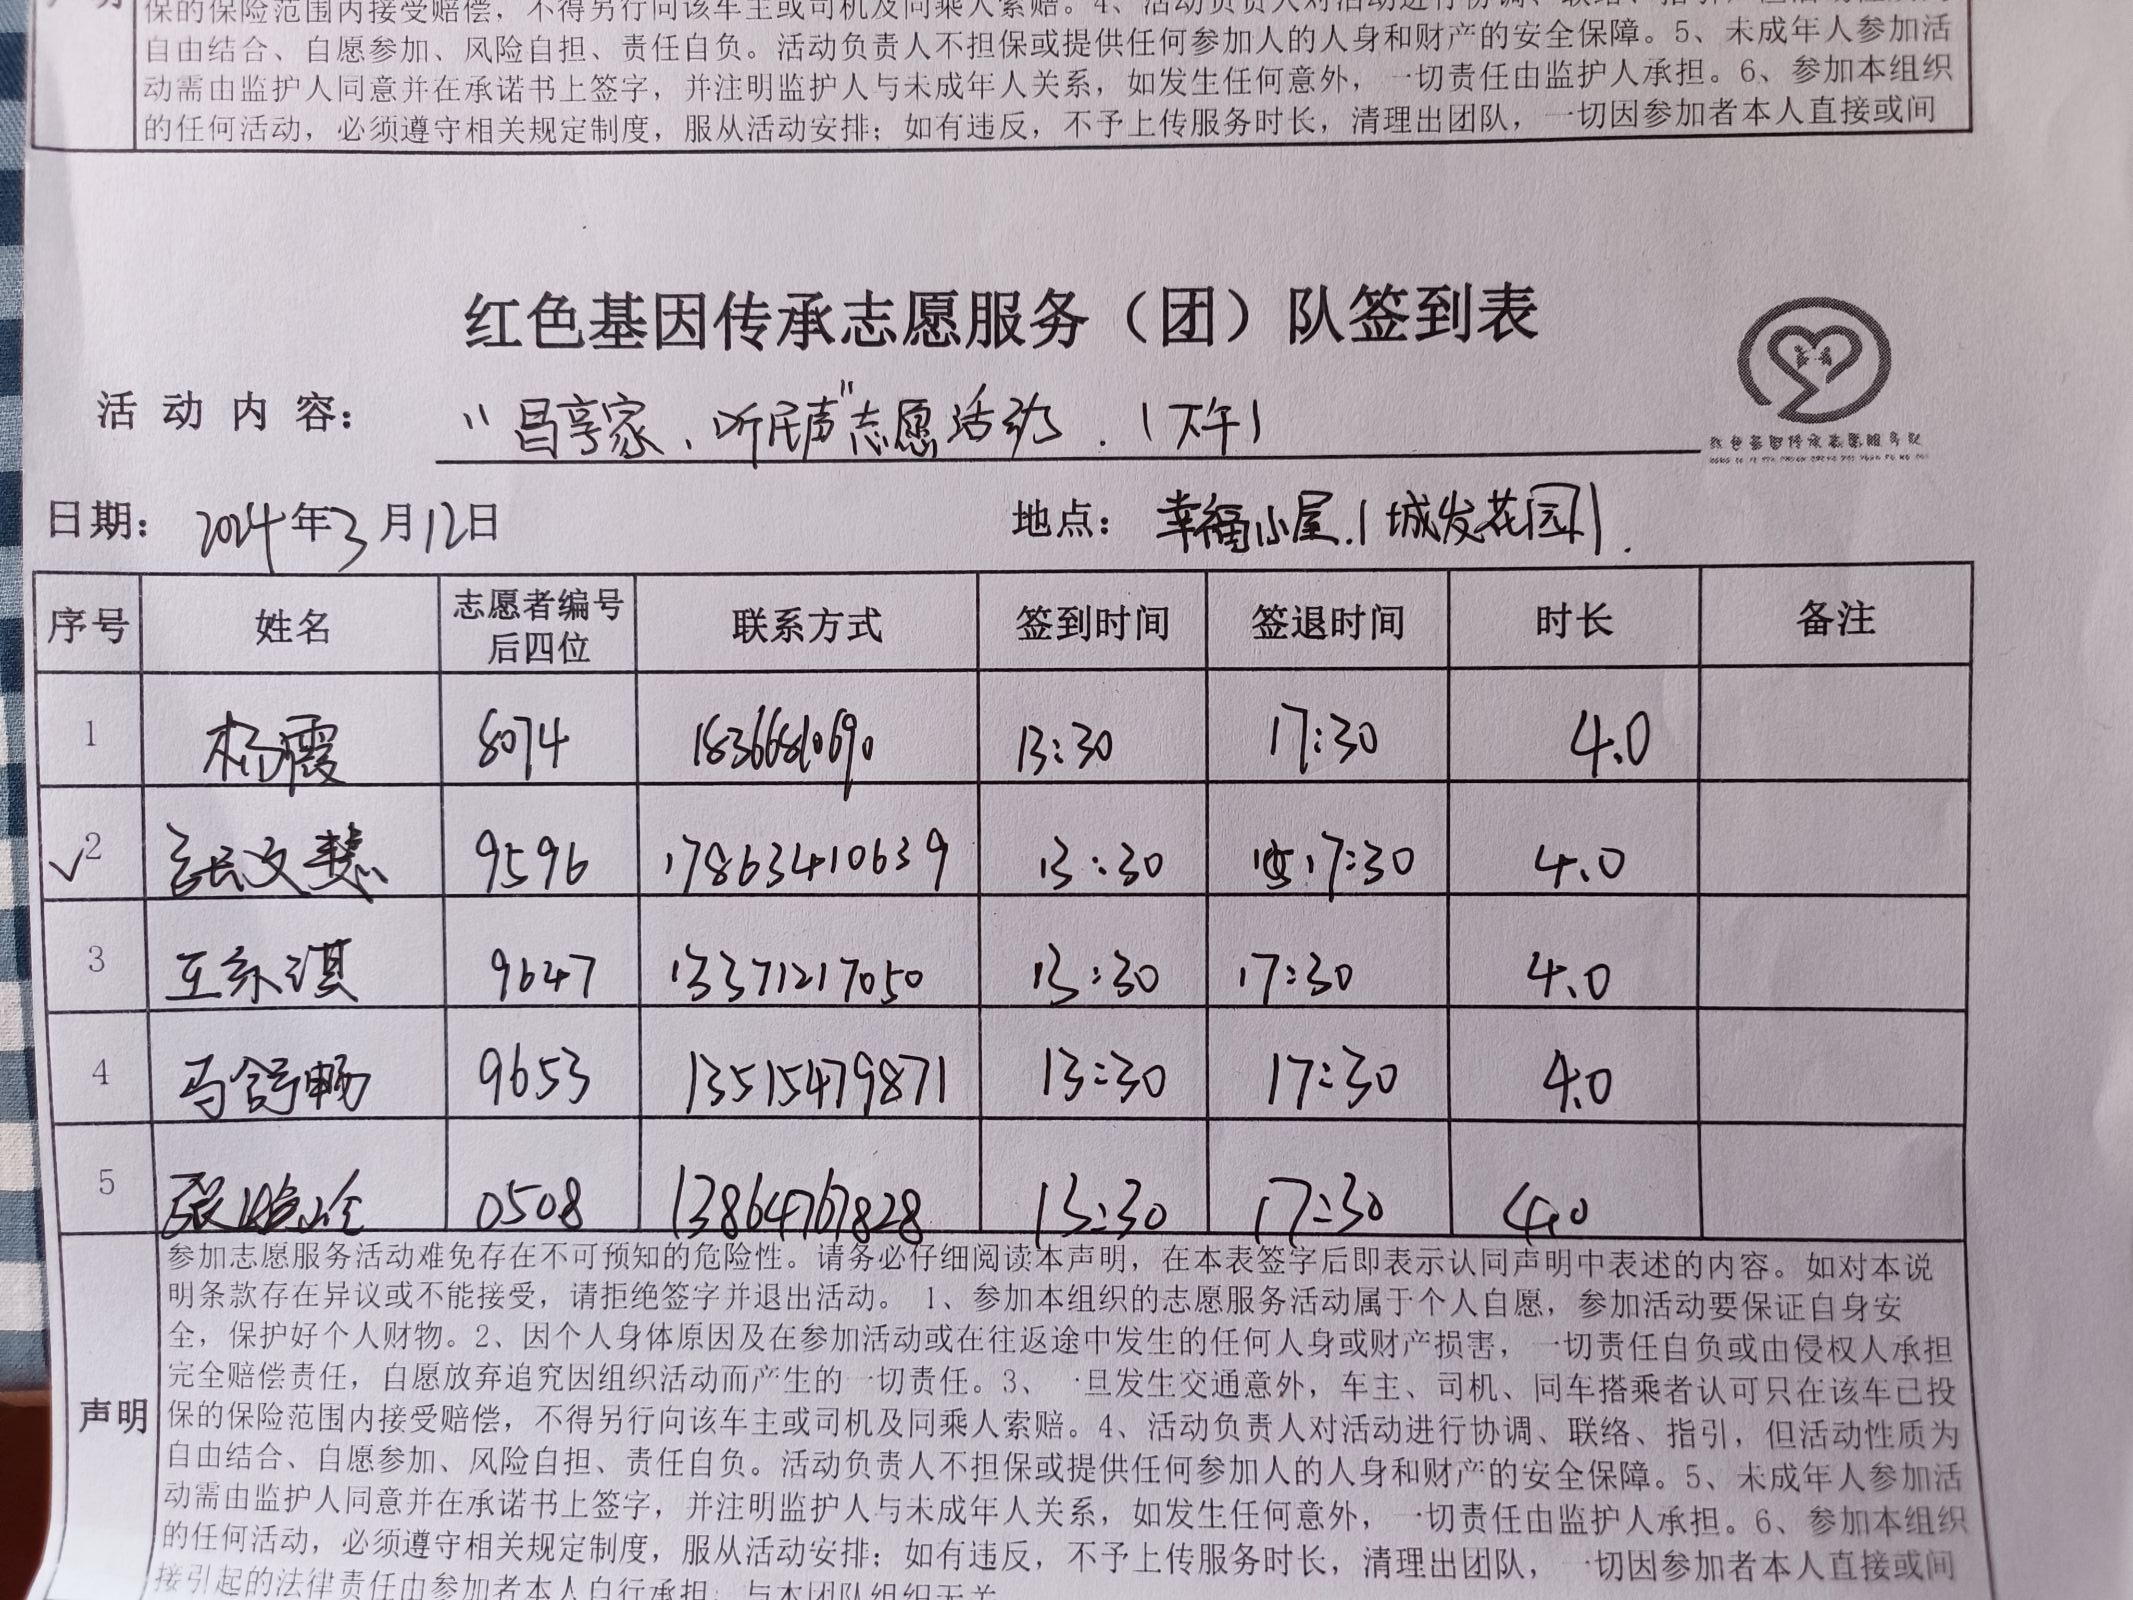 保的保险范围内接受赔偿，不得另行向该车主或司机及同乘人索赔。4、活动负责人对活动进行协调、联络、指引，但活动性质为
自由结合、自愿参加、风险自担、责任自负。活动负责人不担保或提供任何参加人的人身和财产的安全保障。5、未成年人参加活
动需由监护人同意并在承诺书上签字，并注明监护人与未成年人关系，如发生任何意外，一切责任由监护人承担。6、参加本组织
的任何活动，必须遵守相关规定制度，服从活动安排；如有违反，不予上传服务时长，清理出团队，一切因参加者本人直接或间
红色基因传承志愿服务（团）队签到表
红色基因传承志愿服务队
活动内容： "昌享家、听民声"志愿活动.（下午）
日期： 2024年3月12日 地点：幸福小屋.（城发花园）.
序号 姓名 志愿者编号后四位 联系方式 签到时间 签退时间 时长 备注
1 杨霞 8074 18366810690 13:30 17:30 4.0
√2 张文慧 9596 17863410639 13:30 17:30 4.0
3 王永淇 9647 13371217050 13:30 17:30 4.0
4 马舒畅 9653 13515479871 13:30 17:30 4.0
5 张 0508 13864767828 13:30 17:30 4.0
声明
参加志愿服务活动难免存在不可预知的危险性。请务必仔细阅读本声明，在本表签字后即表示认同声明中表述的内容。如对本说
明条款存在异议或不能接受，请拒绝签字并退出活动。 1、参加本组织的志愿服务活动属于个人自愿，参加活动要保证自身安
全，保护好个人财物。2、因个人身体原因及在参加活动或在往返途中发生的任何人身或财产损害，一切责任自负或由侵权人承担
完全赔偿责任，自愿放弃追究因组织活动而产生的一切责任。3、一旦发生交通意外，车主、司机、同车搭乘者认可只在该车已投
保的保险范围内接受赔偿，不得另行向该车主或司机及同乘人索赔。4、活动负责人对活动进行协调、联络、指引，但活动性质为
自由结合、自愿参加、风险自担、责任自负。活动负责人不担保或提供任何参加人的人身和财产的安全保障。5、未成年人参加活
动需由监护人同意并在承诺书上签字，并注明监护人与未成年人关系，如发生任何意外，一切责任由监护人承担。6、参加本组织
的任何活动，必须遵守相关规定制度，服从活动安排；如有违反，不予上传服务时长，清理出团队，一切因参加者本人直接或间
接引起的法律责任由参加者本人自行承担；与本团队组织无关